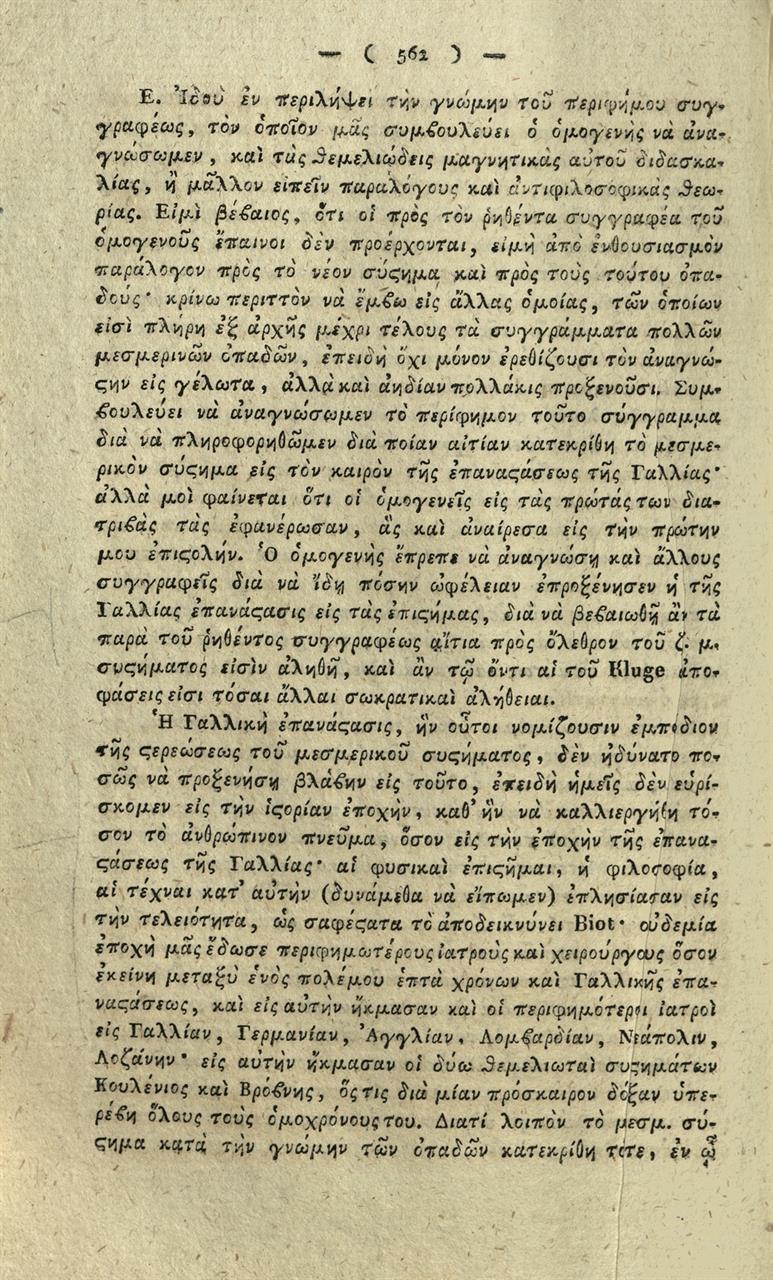 — ( 562 ) —
Ε. Ἰδοὺ ἐν περιλήψει τὴν γνώμην τοῦ περιφήμου συγ-
γραφέως, τὸν ὁποῖον μᾶς συμβουλεύει ὁ ὁμογενὴς νὰ ἀνα-
γνώσωμεν, καὶ τὰς θεμελιώδεις μαγνητικὰς αὐτοῦ διδασκα-
λίας, ἢ μᾶλλον εἰπεῖν παραλόγους καὶ ἀντιφιλοσοφικὰς θεω-
ρίας. Εἰμὶ βέβαιος, ὅτι οἱ πρὸς τὸν ῥηθέντα συγγραφέα τοῦ
ὁμογενοῦς ἔπαινοι δὲν προέρχονται, εἰμὴ ἀπὸ ἐνθουσιασμὸν
παράλογον πρὸς τὸ νέον σύϛημα καὶ πρὸς τοὺς τούτου ὀπα-
δούς· κρίνω περιττὸν νὰ ἔμβω εἰς ἄλλας ὁμοίας, τῶν ὁποίων
εἰσὶ πλήρη ἐξ ἀρχῆς μέχρι τέλους τὰ συγγράμματα πολλῶν
μεσμερινῶν ὀπαδῶν, ἐπειδὴ ὄχι μόνον ἐρεθίζουσι τὸν ἀναγνώ-
ϛην εἰς γέλωτα, ἀλλὰ καὶ ἀηδίαν πολλάκις προξενοῦσι. Συμ-
βουλεύει νὰ ἀναγνώσωμεν τὸ περίφημον τοῦτο σύγγραμμα
διὰ νὰ πληροφορηθῶμεν διὰ ποίαν αἰτίαν κατεκρίθη τὸ μεσμε-
ρικὸν σύϛημα εἰς τὸν καιρὸν τῆς ἐπαναϛάσεως τῆς Γαλλίας·
ἀλλὰ μοὶ φαίνεται ὅτι οἱ ὁμογενεῖς εἰς τὰς πρώτάς των δια-
τριβὰς τὰς ἐφανέρωσαν, ἃς καὶ ἀναίρεσα εἰς τὴν πρώτην
μου ἐπιϛολήν. Ὁ ὁμογενὴς ἔπρεπε νὰ ἀναγνώσῃ καὶ ἄλλους
συγγραφεῖς διὰ νὰ ἴδῃ πόσην ὠφέλειαν ἐπροξένησεν ἡ τῆς
Γαλλίας ἐπανάϛασις εἰς τὰς ἐπιϛήμας, διὰ νὰ βεβαιωθῇ ἂν τὰ
παρὰ τοῦ ῥηθέντος συγγραφέως αἴτια πρὸς ὄλεθρον τοῦ ζ. μ.
συϛήματος εἰσὶν ἀληθῆ, καὶ ἂν τῷ ὄντι αἱ τοῦ Kluge ἀπο-
φάσεις εἰσι τόσαι ἄλλαι σωκρατικαὶ ἀλήθειαι.
Ἡ Γαλλικὴ ἐπανάϛασις, ἣν οὗτοι νομίζουσιν ἐμπόδιον
τῆς ϛερεώσεως τοῦ μεσμερικοῦ συϛήματος, δὲν ἠδύνατο πο-
σῶς νὰ προξενήσῃ βλάβην εἰς τοῦτο, ἐπειδὴ ἡμεῖς δὲν εὑρί-
σκομεν εἰς τὴν ἱϛορίαν ἐποχὴν, καθ' ἣν νὰ καλλιεργήθη τό-
σον τὸ ἀνθρώπινον πνεῦμα, ὅσον εἰς τὴν ἐποχὴν τῆς ἐπανα-
ϛάσεως τῆς Γαλλίας· αἱ φυσικαὶ ἐπιϛῆμαι, ἡ φιλοσοφία,
αἱ τέχναι κατ' αὐτὴν (δυνάμεθα νὰ εἴπωμεν) ἐπλησίασαν εἰς
τὴν τελειότητα, ὡς σαφέϛατα τὸ ἀποδεικνύνει Biot· οὐδεμία
ἐποχὴ μᾶς ἔδωσε περιφημωτέρους ἰατροὺς καὶ χειρούργους ὅσον
ἐκείνη μεταξὺ ἑνὸς πολέμου ἑπτὰ χρόνων καὶ Γαλλικῆς ἐπα-
ναϛάσεως, καὶ εἰς αὐτὴν ἤκμασαν καὶ οἱ περιφημότεροι ἰατροὶ
εἰς Γαλλίαν, Γερμανίαν, Ἀγγλίαν, Λομβαρδίαν, Νεάπολιν,
Λοζάνην· εἰς αὐτὴν ἤκμασαν οἱ δύω θεμελιωταὶ συϛημάτων
Κουλένιος καὶ Βρόβνης, ὅς τις διὰ μίαν πρόσκαιρον δόξαν ὑπε-
ρέβη ὅλους τοὺς ὁμοχρόνους του. Διατί λοιπὸν τὸ μεσμ. σύ-
ϛημα κατὰ τὴν γνώμην τῶν ὀπαδῶν κατεκρίθη τότε, ἐν ᾧ